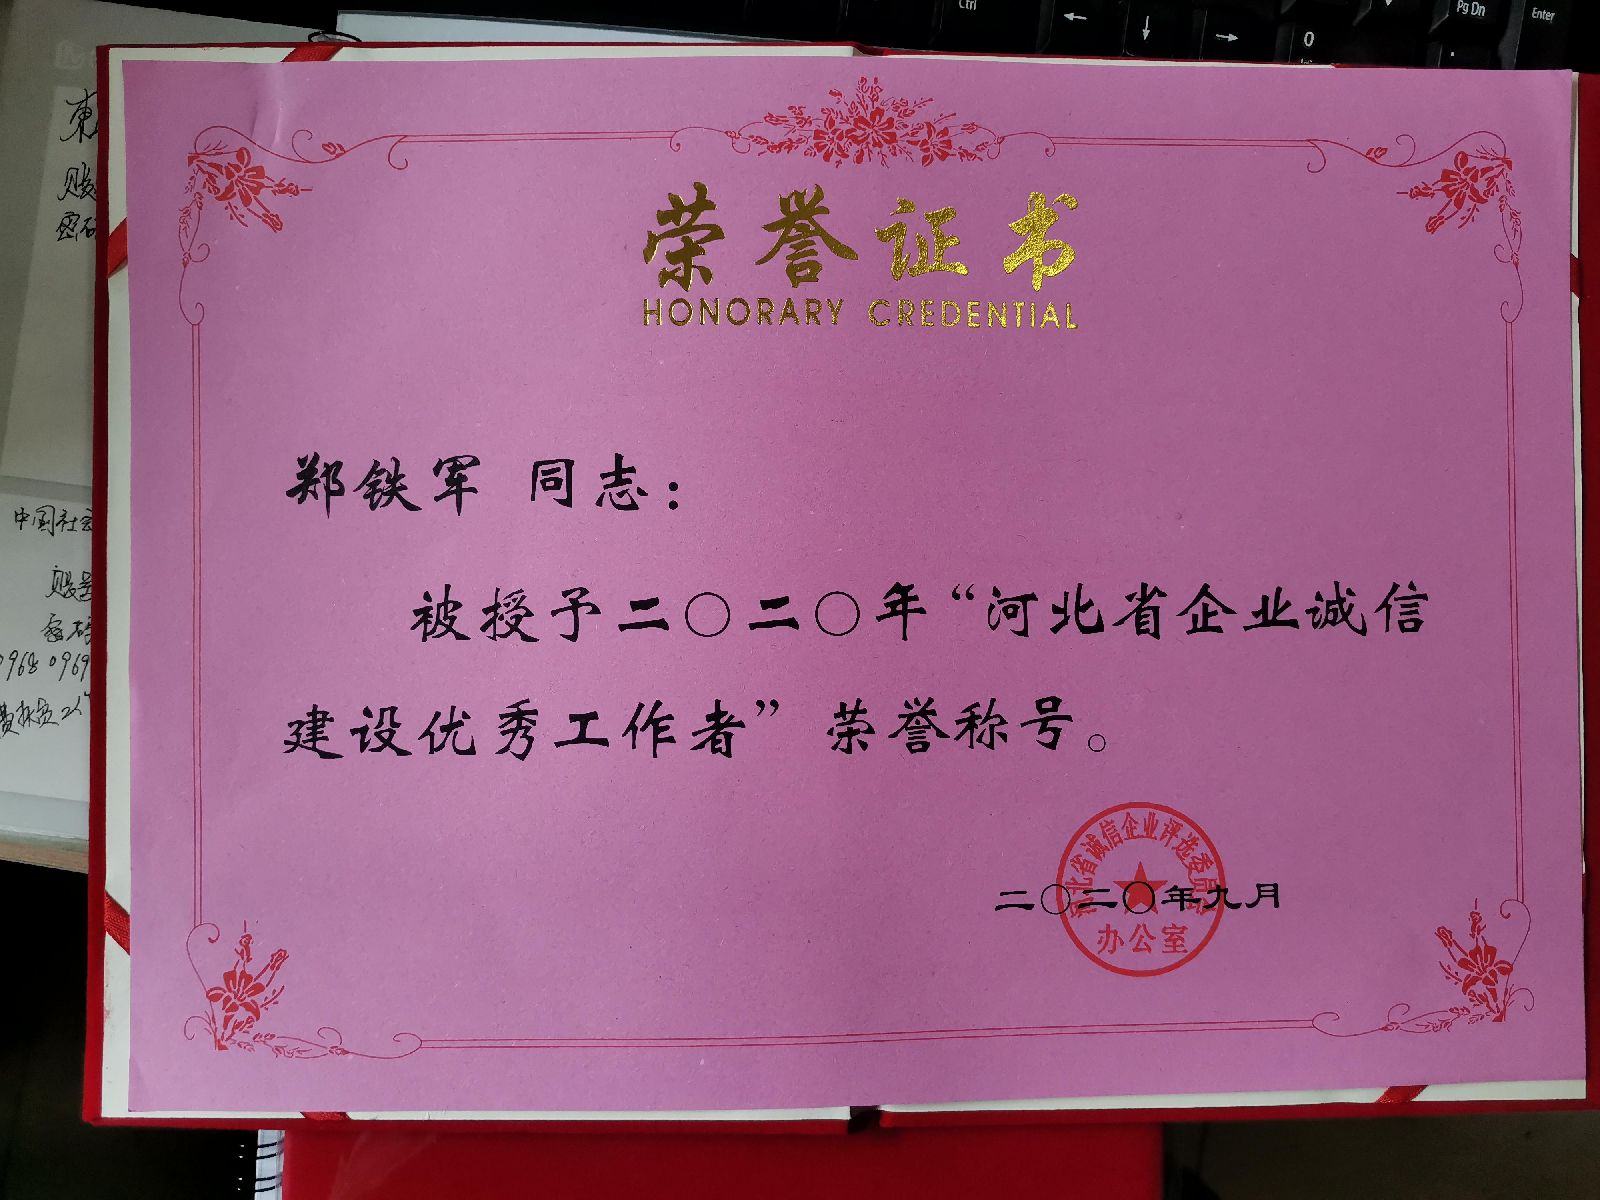 Ctrl
←
↓
→
0
Pg Dn
Enter
荣誉证书
HONORARY CREDENTIAL
郑铁军 同志：
被授予二〇二〇年“河北省企业诚信
建设优秀工作者”荣誉称号。
河北省诚信企业评选委员会
二〇二〇年九月
办公室
東
账
密码
中国社会
账号
密码
0968 0969